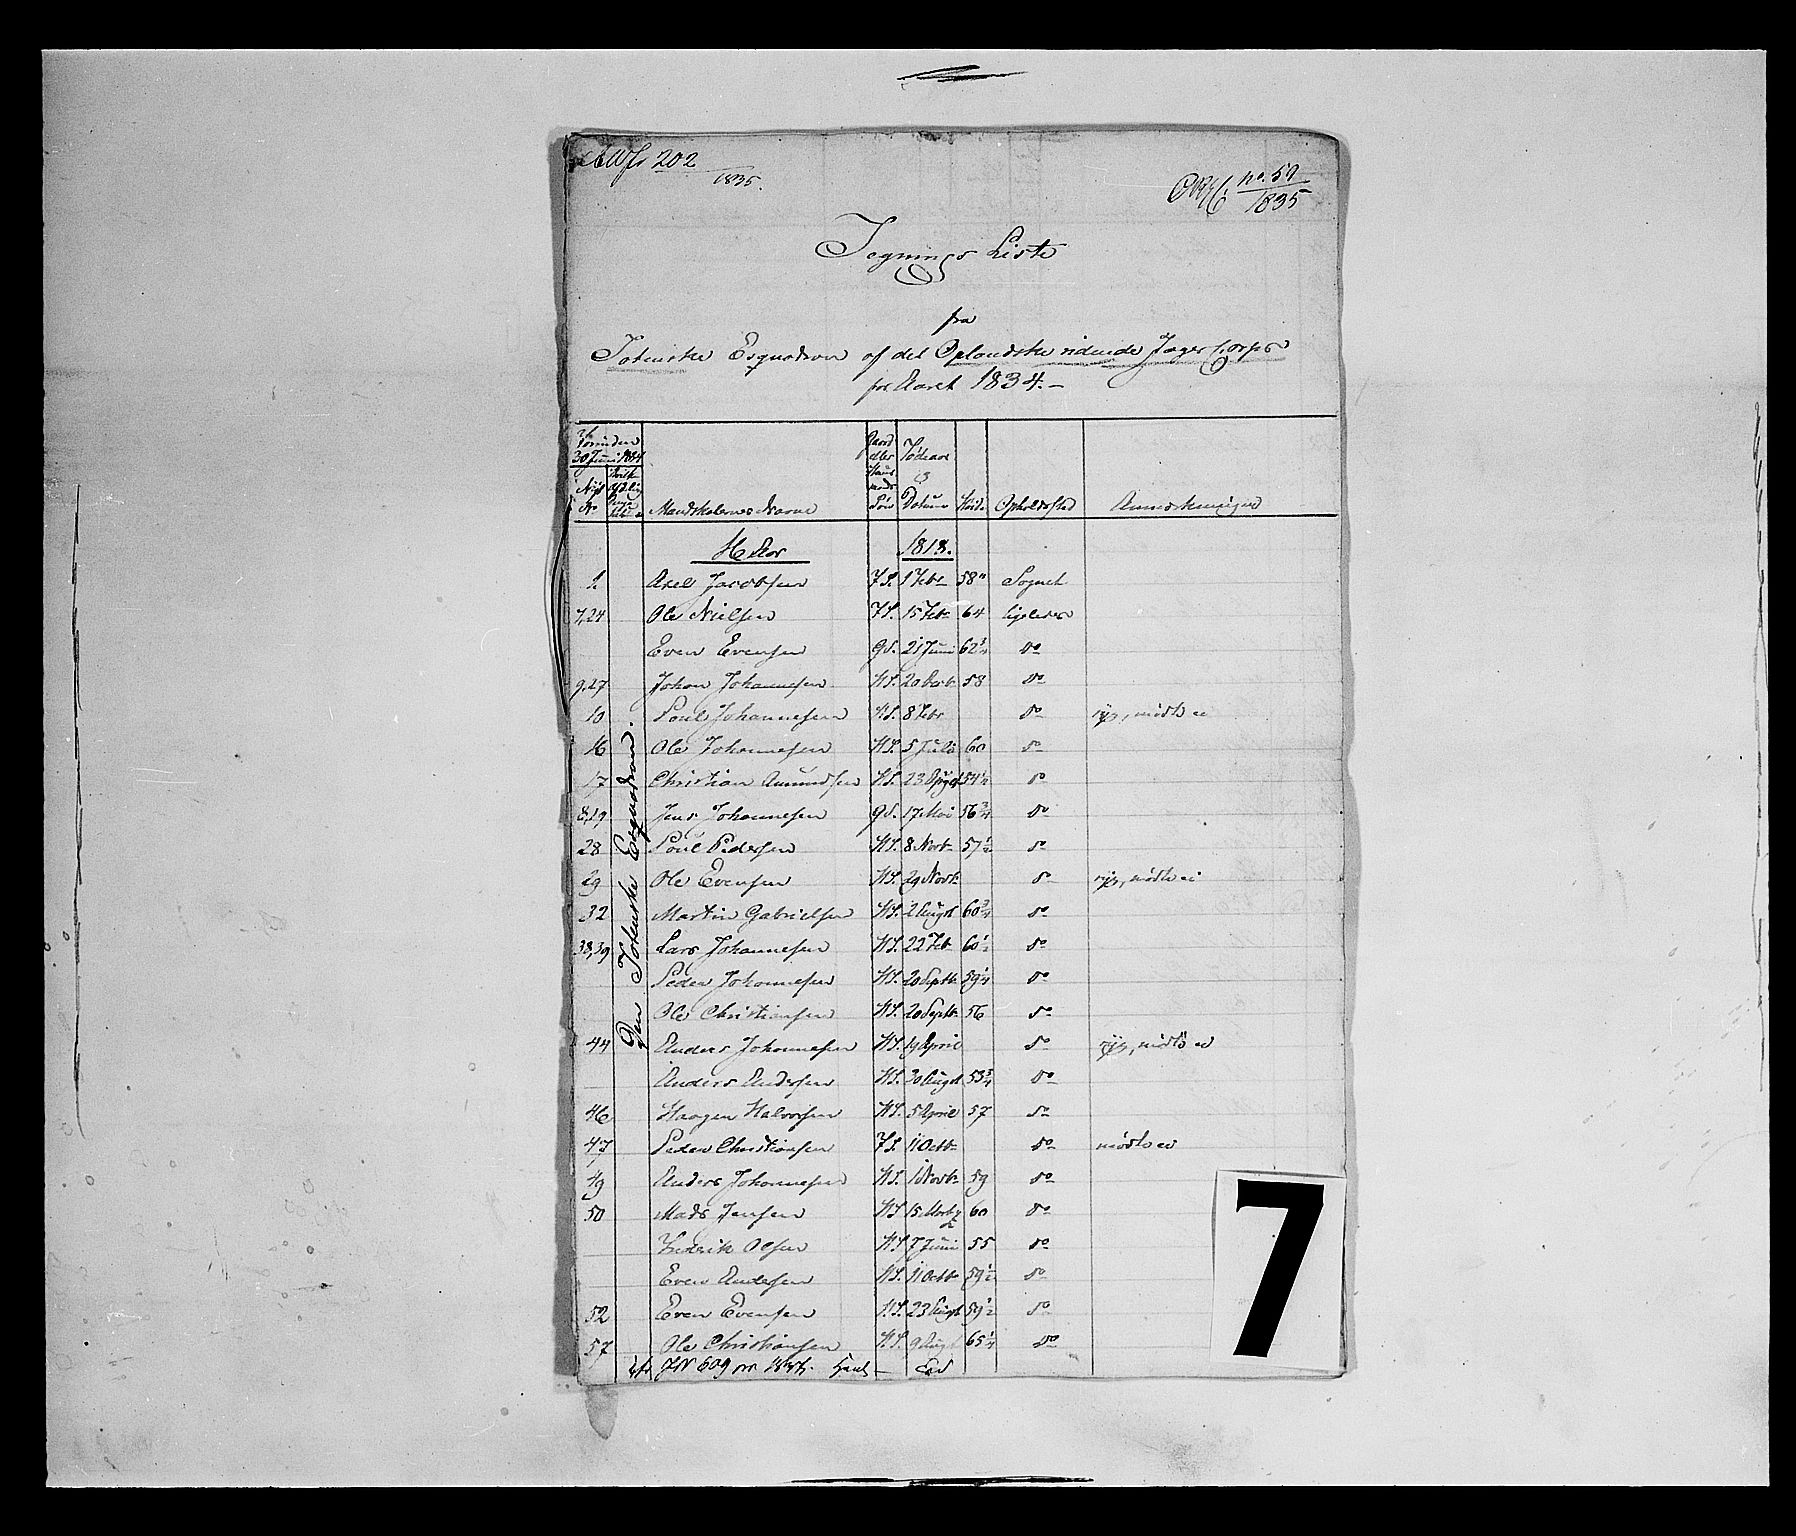 202
1835.
no. 57
1835
Tegnings Liste
fra
Totenske Esqvadron af det Oplandske ridende Jæger Corps
for Aaret 1834.-
30 Juni 1834
Mandskabernes Navne
Gaard eller Huusmands Søn
Fødeaar & Datum
Høide
Opholdssted
Anmærkninger
Den Totenske Esqvadron.
1818.
1 Axel Jacobsen 7 S. 1 Febr 58" Sognet
7,24 Ole Nielsen 7 S. 15 Febr 64 ligeledes
Even Evensen g S. 21 Juni 62 3/4 do
9,27 Johan Johannesen HS. 20 Octb 58 do
10 Poul Johannesen HS. 8 Febr do syg, mødte ei
16 Ole Johannesen HS. 5 Juli 60 do
17 Christian Amundsen HS. 23 August 54 1/2 do
8,19 Jens Johannesen g S. 17 Mai 56 3/4 do
28 Poul Pedersen HS. 8 Novb 57 1/2 do
29 Ole Evensen HS. 29 Novb do syg, mødte ei
32 Martin Gabrielsen HS. 2 Augst 60 3/4 do
38,39 Lars Johannesen HS. 22 Feb 60 1/2 do
Peder Johannesen HS. 20 Septb 59 1/4 do
Ole Christiansen HS. 20 Septb 56 do
44 Anders Johannesen HS. 19 April do syg, mødte ei
Anders Andersen HS. 30 Augst 53 3/4 do
46 Haagen Halvorsen HS. 5 April 57 do
47 Peder Christiansen 7 S. 11 Octb do mødte ei
49 Anders Johannesen HS. 1 Novb 59 do
50 Mads Jensen HS. 15 Martz 60 do
Frederik Olsen HS. 7 Juni 55 do
Even Andersen HS. 11 Octb 59 1/2 do
52 Even Evensen HS. 23 Augst 59 1/2 do
57 Ole Christiansen HS. 9 Augst 65 1/4 do
7